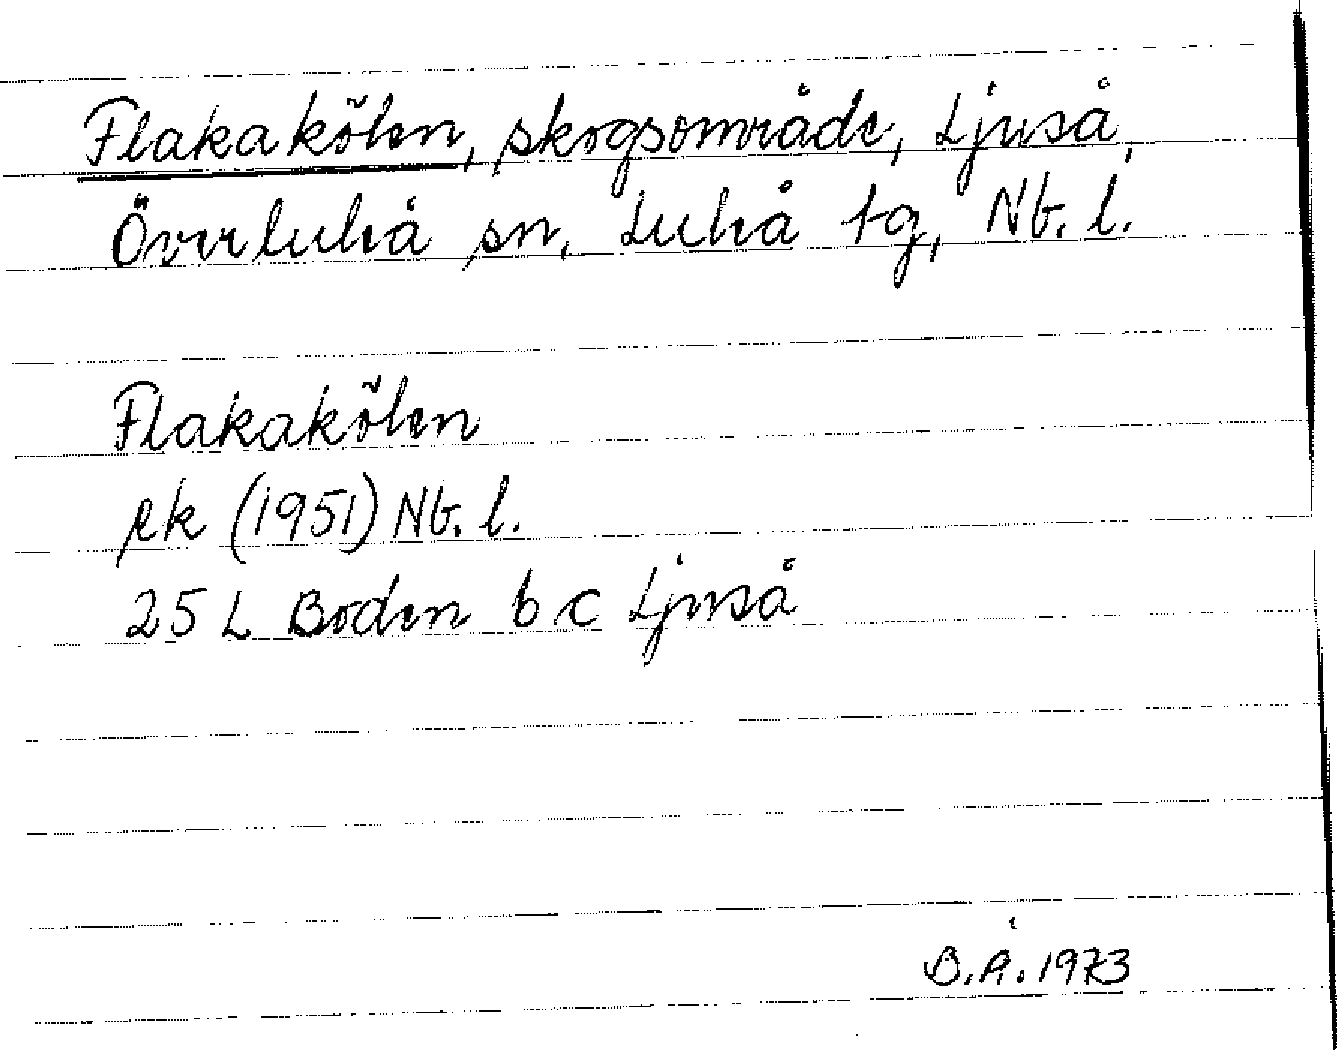 Flakakölen, skogsområde, Ljuså,
Överluleå sn, Luleå tg, Nb. l.
Flakakölen
ek (1951) Nb. l.
25 L Boden b c Ljuså
B.Å. 1973